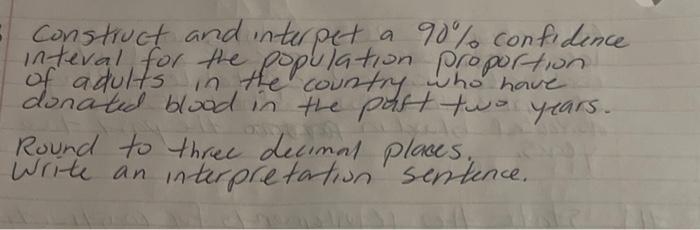 Construct and interpet a 90% confidence
interval for the population proportion
of adults in the country who have
donated blood in the past two years.
Round to three decimal places.
Write an interpretation sentence.